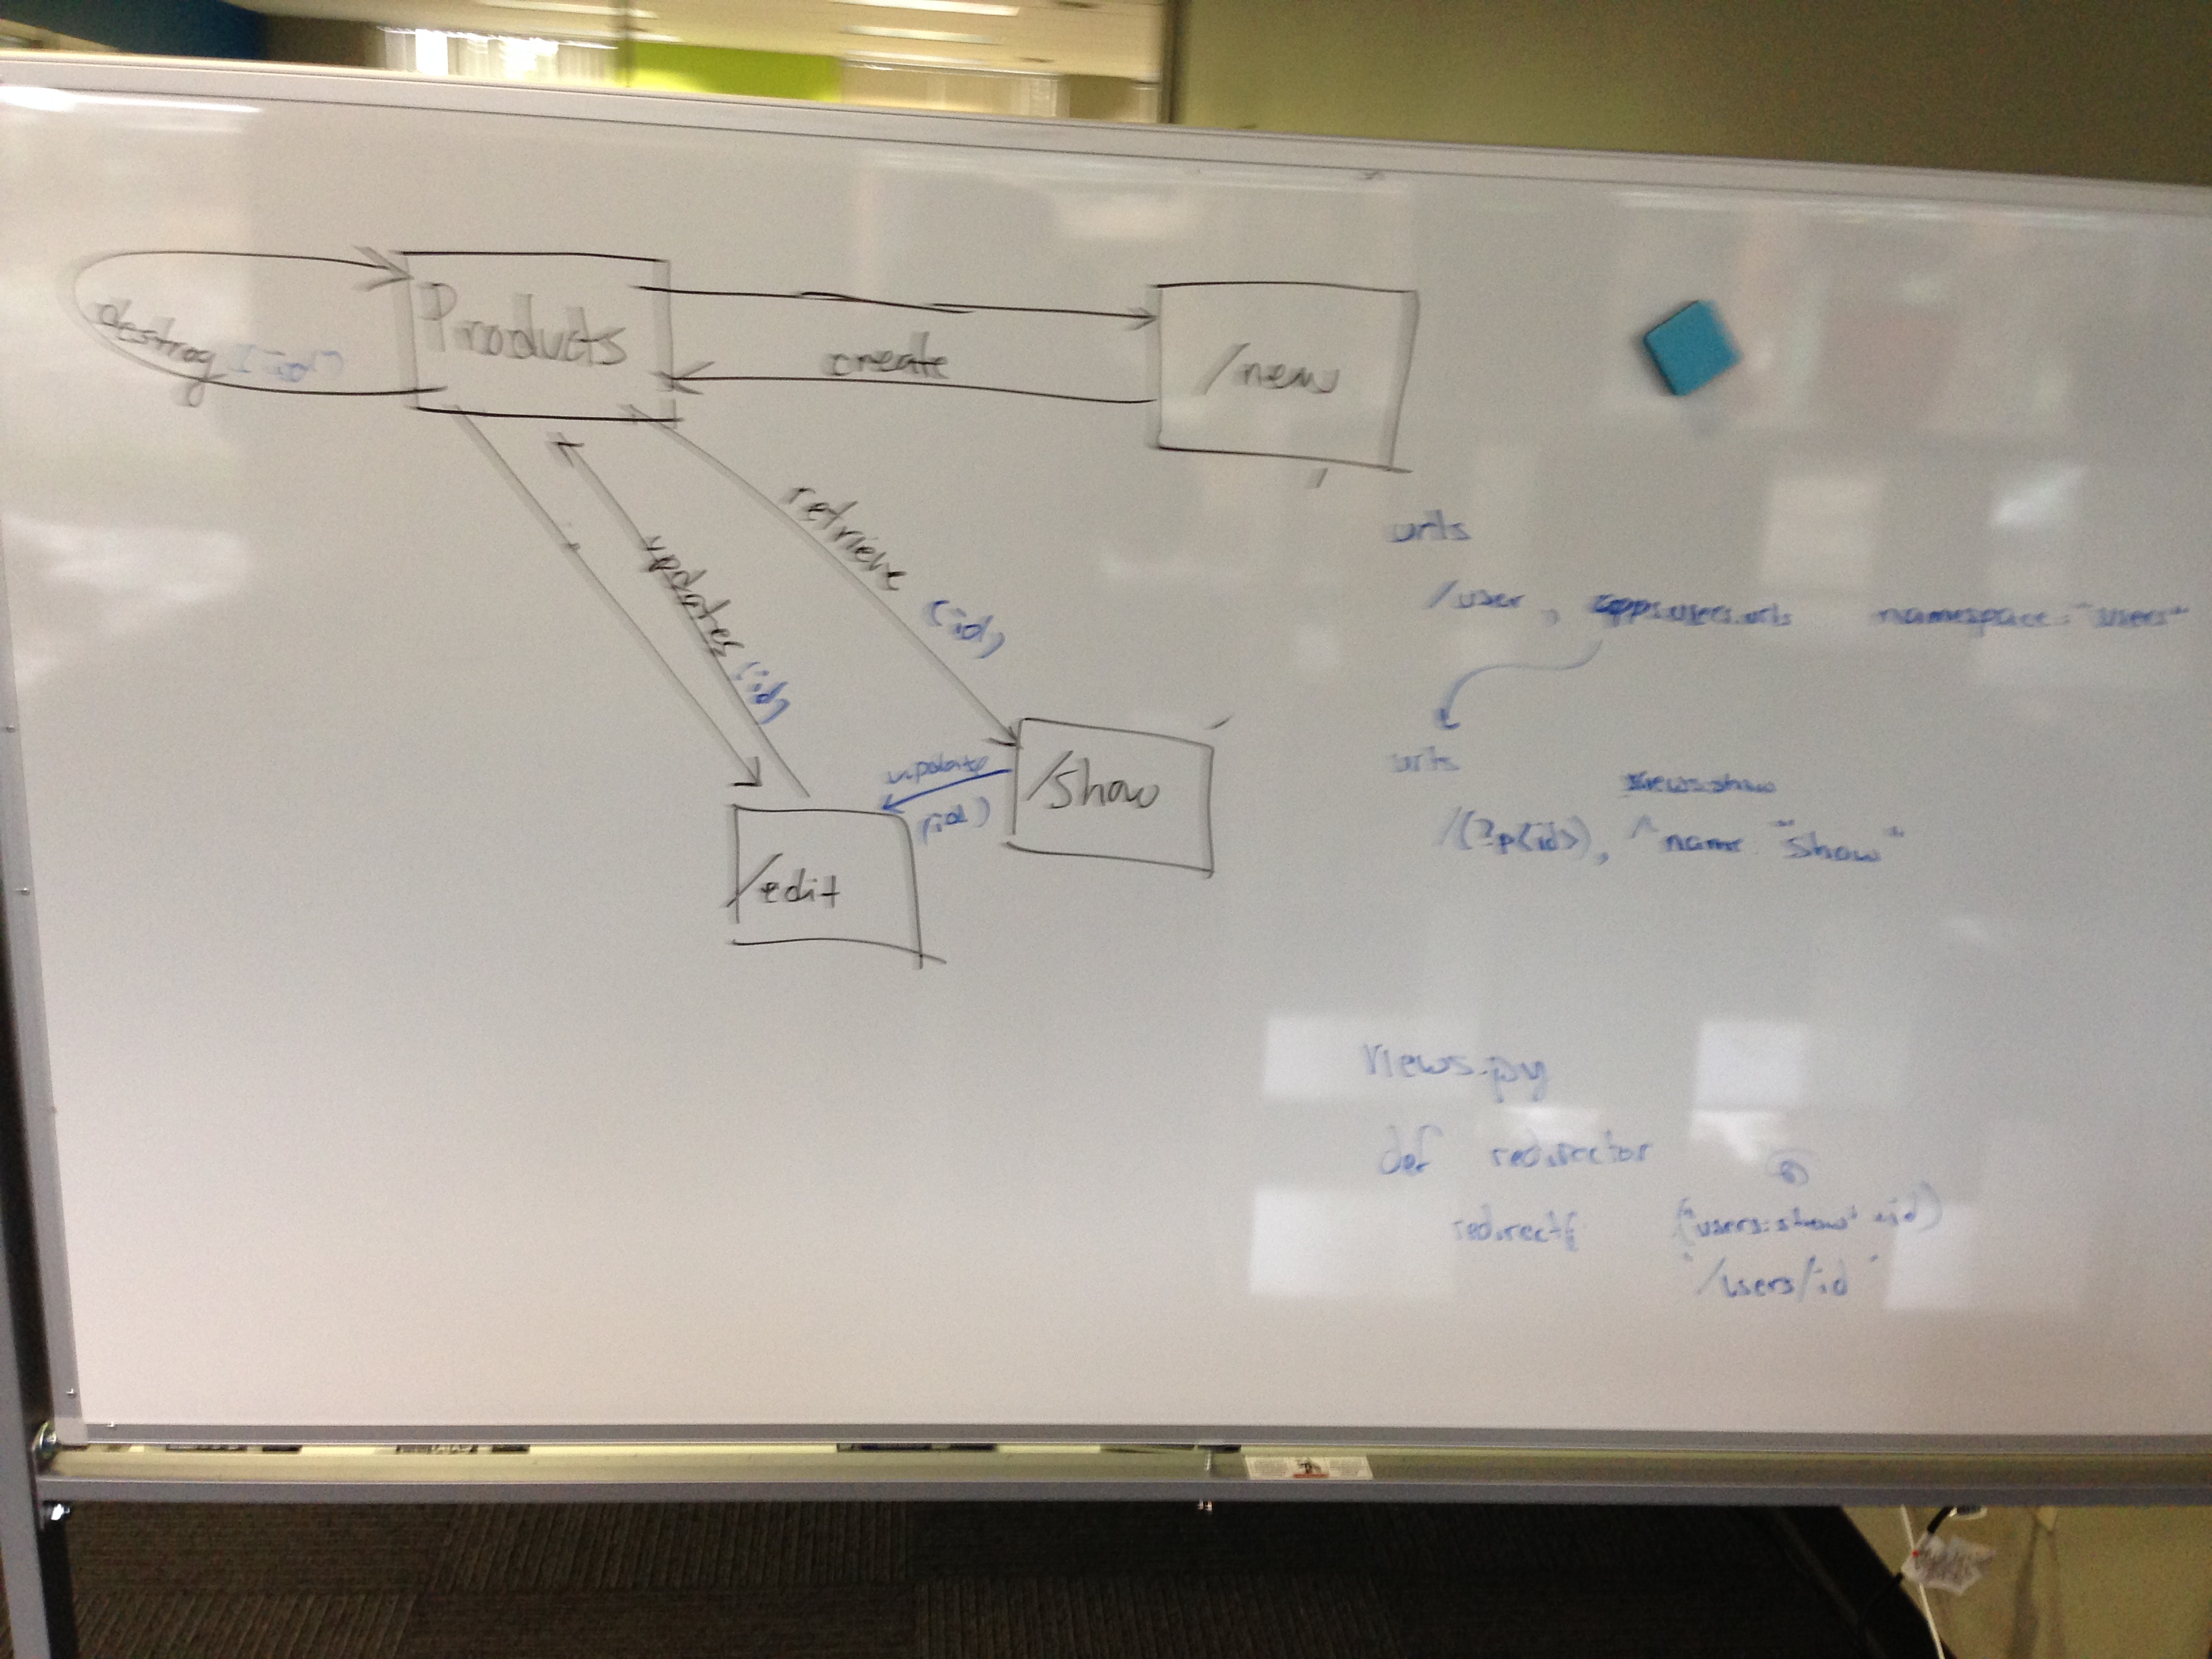 Products
destroy (id)
create
/new
retrieve (id)
updates (id)
update
(id)
/show
/edit
urls
/user , apps.users.urls namespace: "users"
urls
views.show
/(?P<id>), ^ name "show"
views.py
def redirector
redirect( ("users:show" id)
"/users/id"